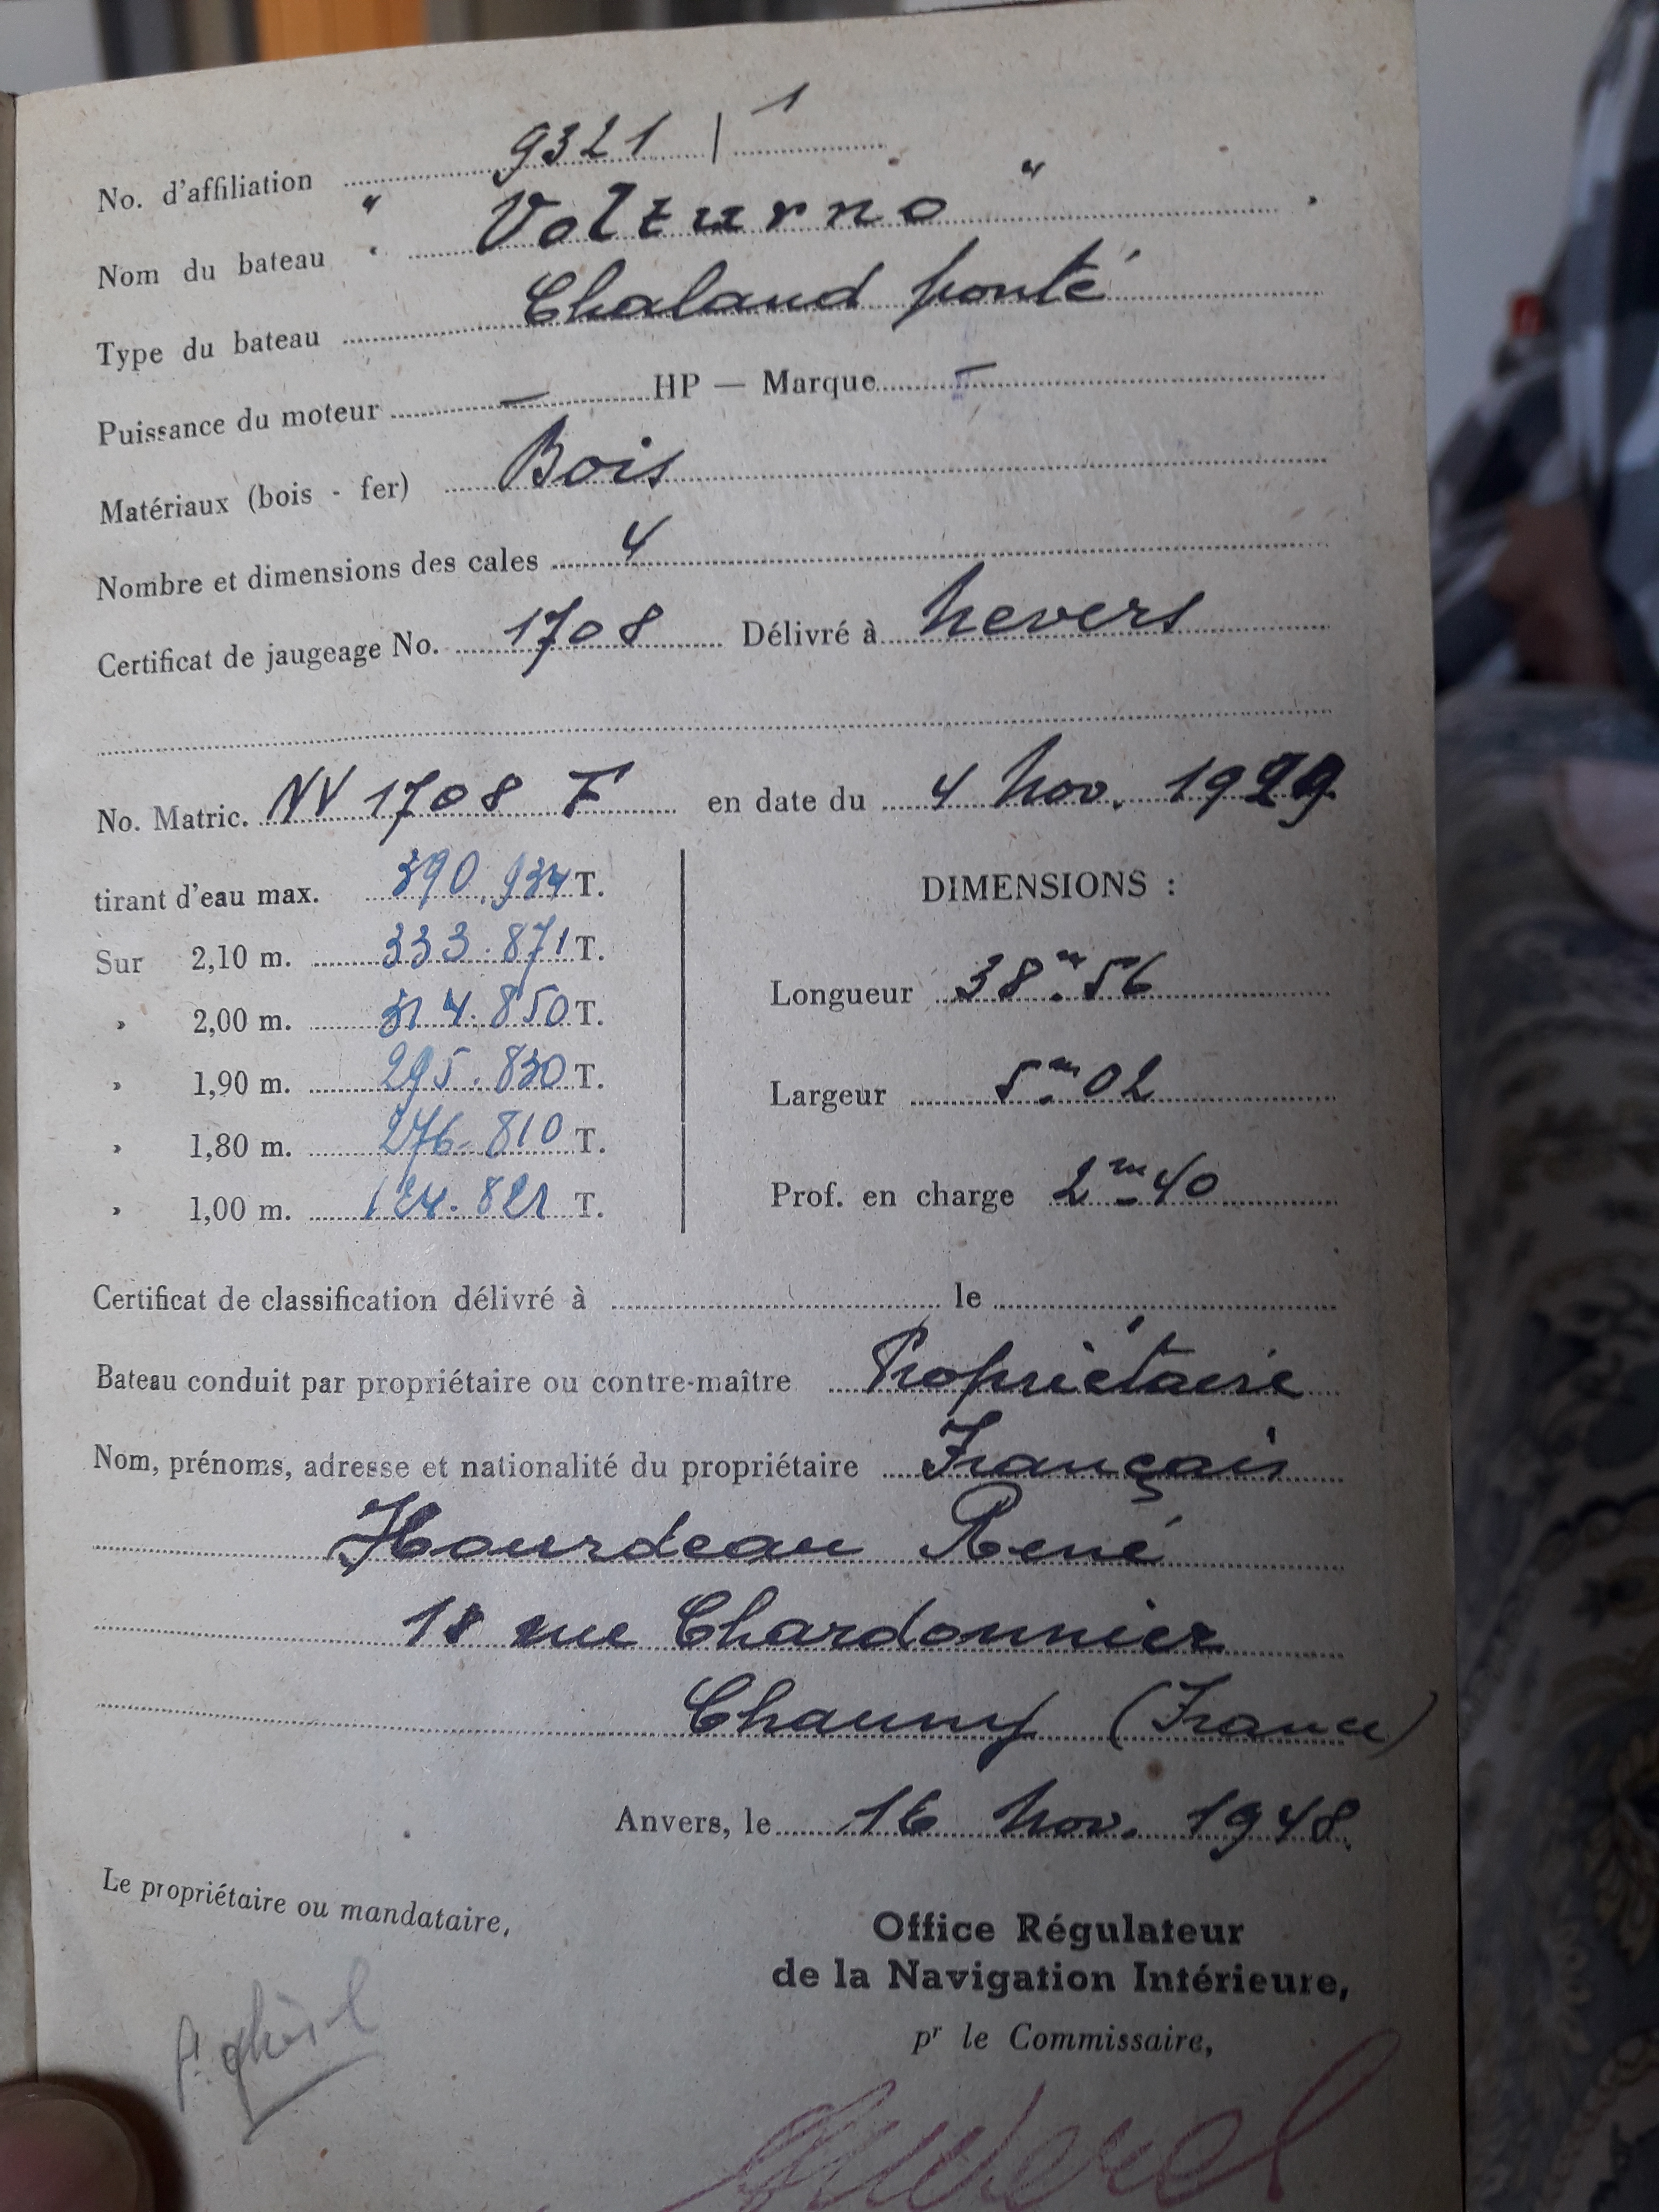 No. d'affiliation 9321 | 1
Nom du bateau " Volturno "
Type du bateau Chaland ponté
Puissance du moteur — HP — Marque —
Matériaux (bois - fer) Bois
Nombre et dimensions des cales 4
Certificat de jaugeage No. 1708 Délivré à Nevers
No. Matric. NV 1708 F en date du 4 Nov. 1929
tirant d'eau max. 390.934 T.
Sur 2,10 m. 333.871 T.
» 2,00 m. 314.850 T.
» 1,90 m. 295.830 T.
» 1,80 m. 276.810 T.
» 1,00 m. 124.821 T.
DIMENSIONS :
Longueur 38m.56
Largeur 5m.02
Prof. en charge 2m.40
Certificat de classification délivré à le
Bateau conduit par propriétaire ou contre-maître Propriétaire
Nom, prénoms, adresse et nationalité du propriétaire Français
Hourdeau René
18 rue Chardonnier
Chauny (France)
Anvers, le 16 Nov. 1948.
Le propriétaire ou mandataire,
Office Régulateur
de la Navigation Intérieure,
pr le Commissaire,